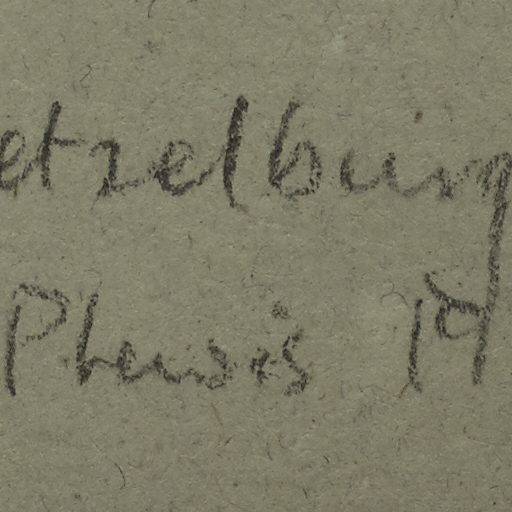 etzelburg
Phewsis 19